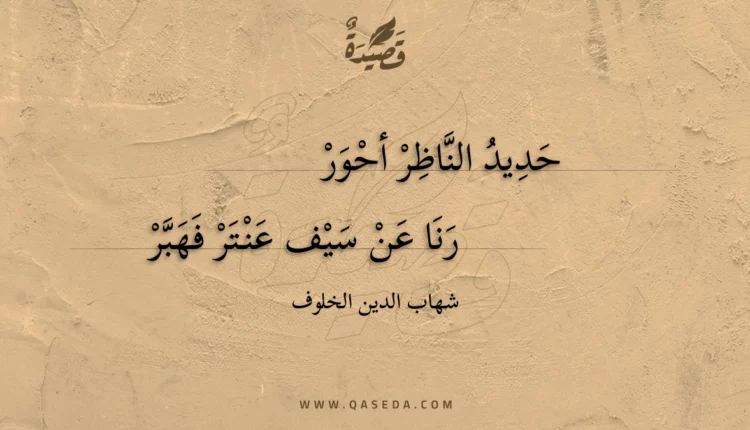 قَصِيدَةٌ
حَدِيدُ النَّاظِرْ أحْوَرْ
رَنَا عَنْ سَيْف عَنْتَرْ فَهَبَّرْ
شهاب الدين الخلوف
WWW.QASEDA.COM